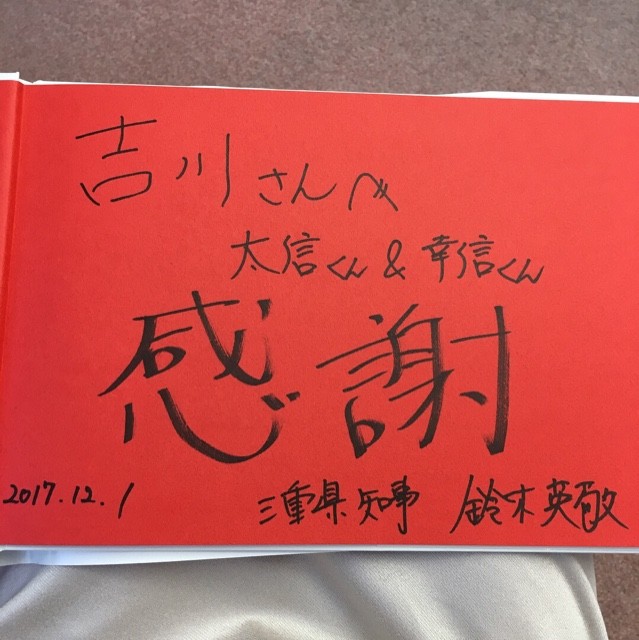 吉川さんへ
太信くん&幸信くん
感謝
2017.12.1 三重県知事 鈴木英敬